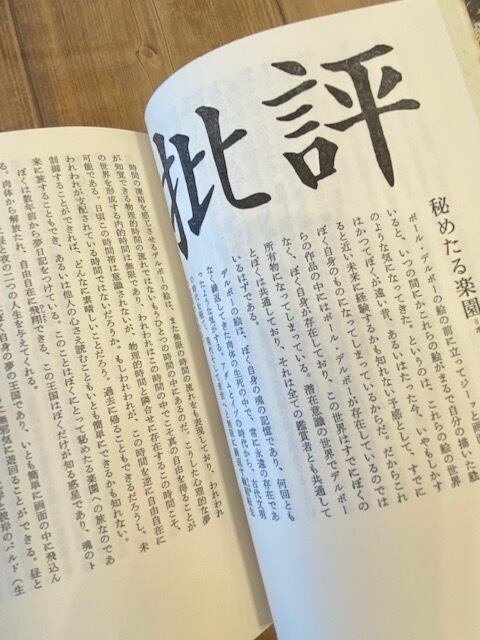 批評
秘めたる楽園
ポール・デルボーの絵の前に立ってジーッと画面
いると、いつの間にかこれらの絵がまるで自分の描いた絵
のような気になってきた。というのは、これらの絵の世界
はかつてぼくが遠い昔、あるいはたった今、いやもしかす
ると近い未来に経験するかも知れない予感として、すでに
ぼく自身のものになってしまっているからだ。だからこれ
らの作品の中にはポール・デルボーが存在しているのでは
なく、ぼく自身が存在しており、この世界はすでにぼくの
所有物になってしまっている。潜在意識の世界でデルボー
とぼくは共通しており、それは全ての鑑賞者とも共通して
いるはずである。
デルボーの絵は、ぼく自身の魂の記憶であり、何回とも
なく繰返してきた肉体の生死の中で、常に永遠の存在であ
ったような気がする。アダムとイブの時代から、古代文明
時間の凍結を感じさせるデルボーの絵は、また無限の時間の流れをも表現しており、われわれ
が知覚できる物理的時間の流れではないもうひとつの時間の中にあるのだ。こうした心理的な夢
の世界を形成する内的時間は無限であり、われわれはこの時間の中でこそ真の自由を得ることが
可能である。日頃この時間帯は意識されないが、物理的時間と隣合せに存在するこの時間こそ、
われわれが支配されている時間ではないだろうか。もしわれわれが、この時間を逆に自由自在に
制御することができれば、どんなに素晴しいことだろう。過去に帰ることもできるだろうし、未
来に旅することもでき、あるいは他人の心さえ読むこともいとも簡単にできるかも知れない。
このことはぼくにとって秘めたる楽園への旅なのであ
る。
ぼくは数年前から夢日記をつけている。この王国はぼくだけが知る惑星であり、魂のト
肉体から解放たれ、自由自在に飛翔できる、ぼく自身の夢の王国であり、いとも簡単に画面の中に飛込ん
昼と夜の二つの人生を与えてくれる。